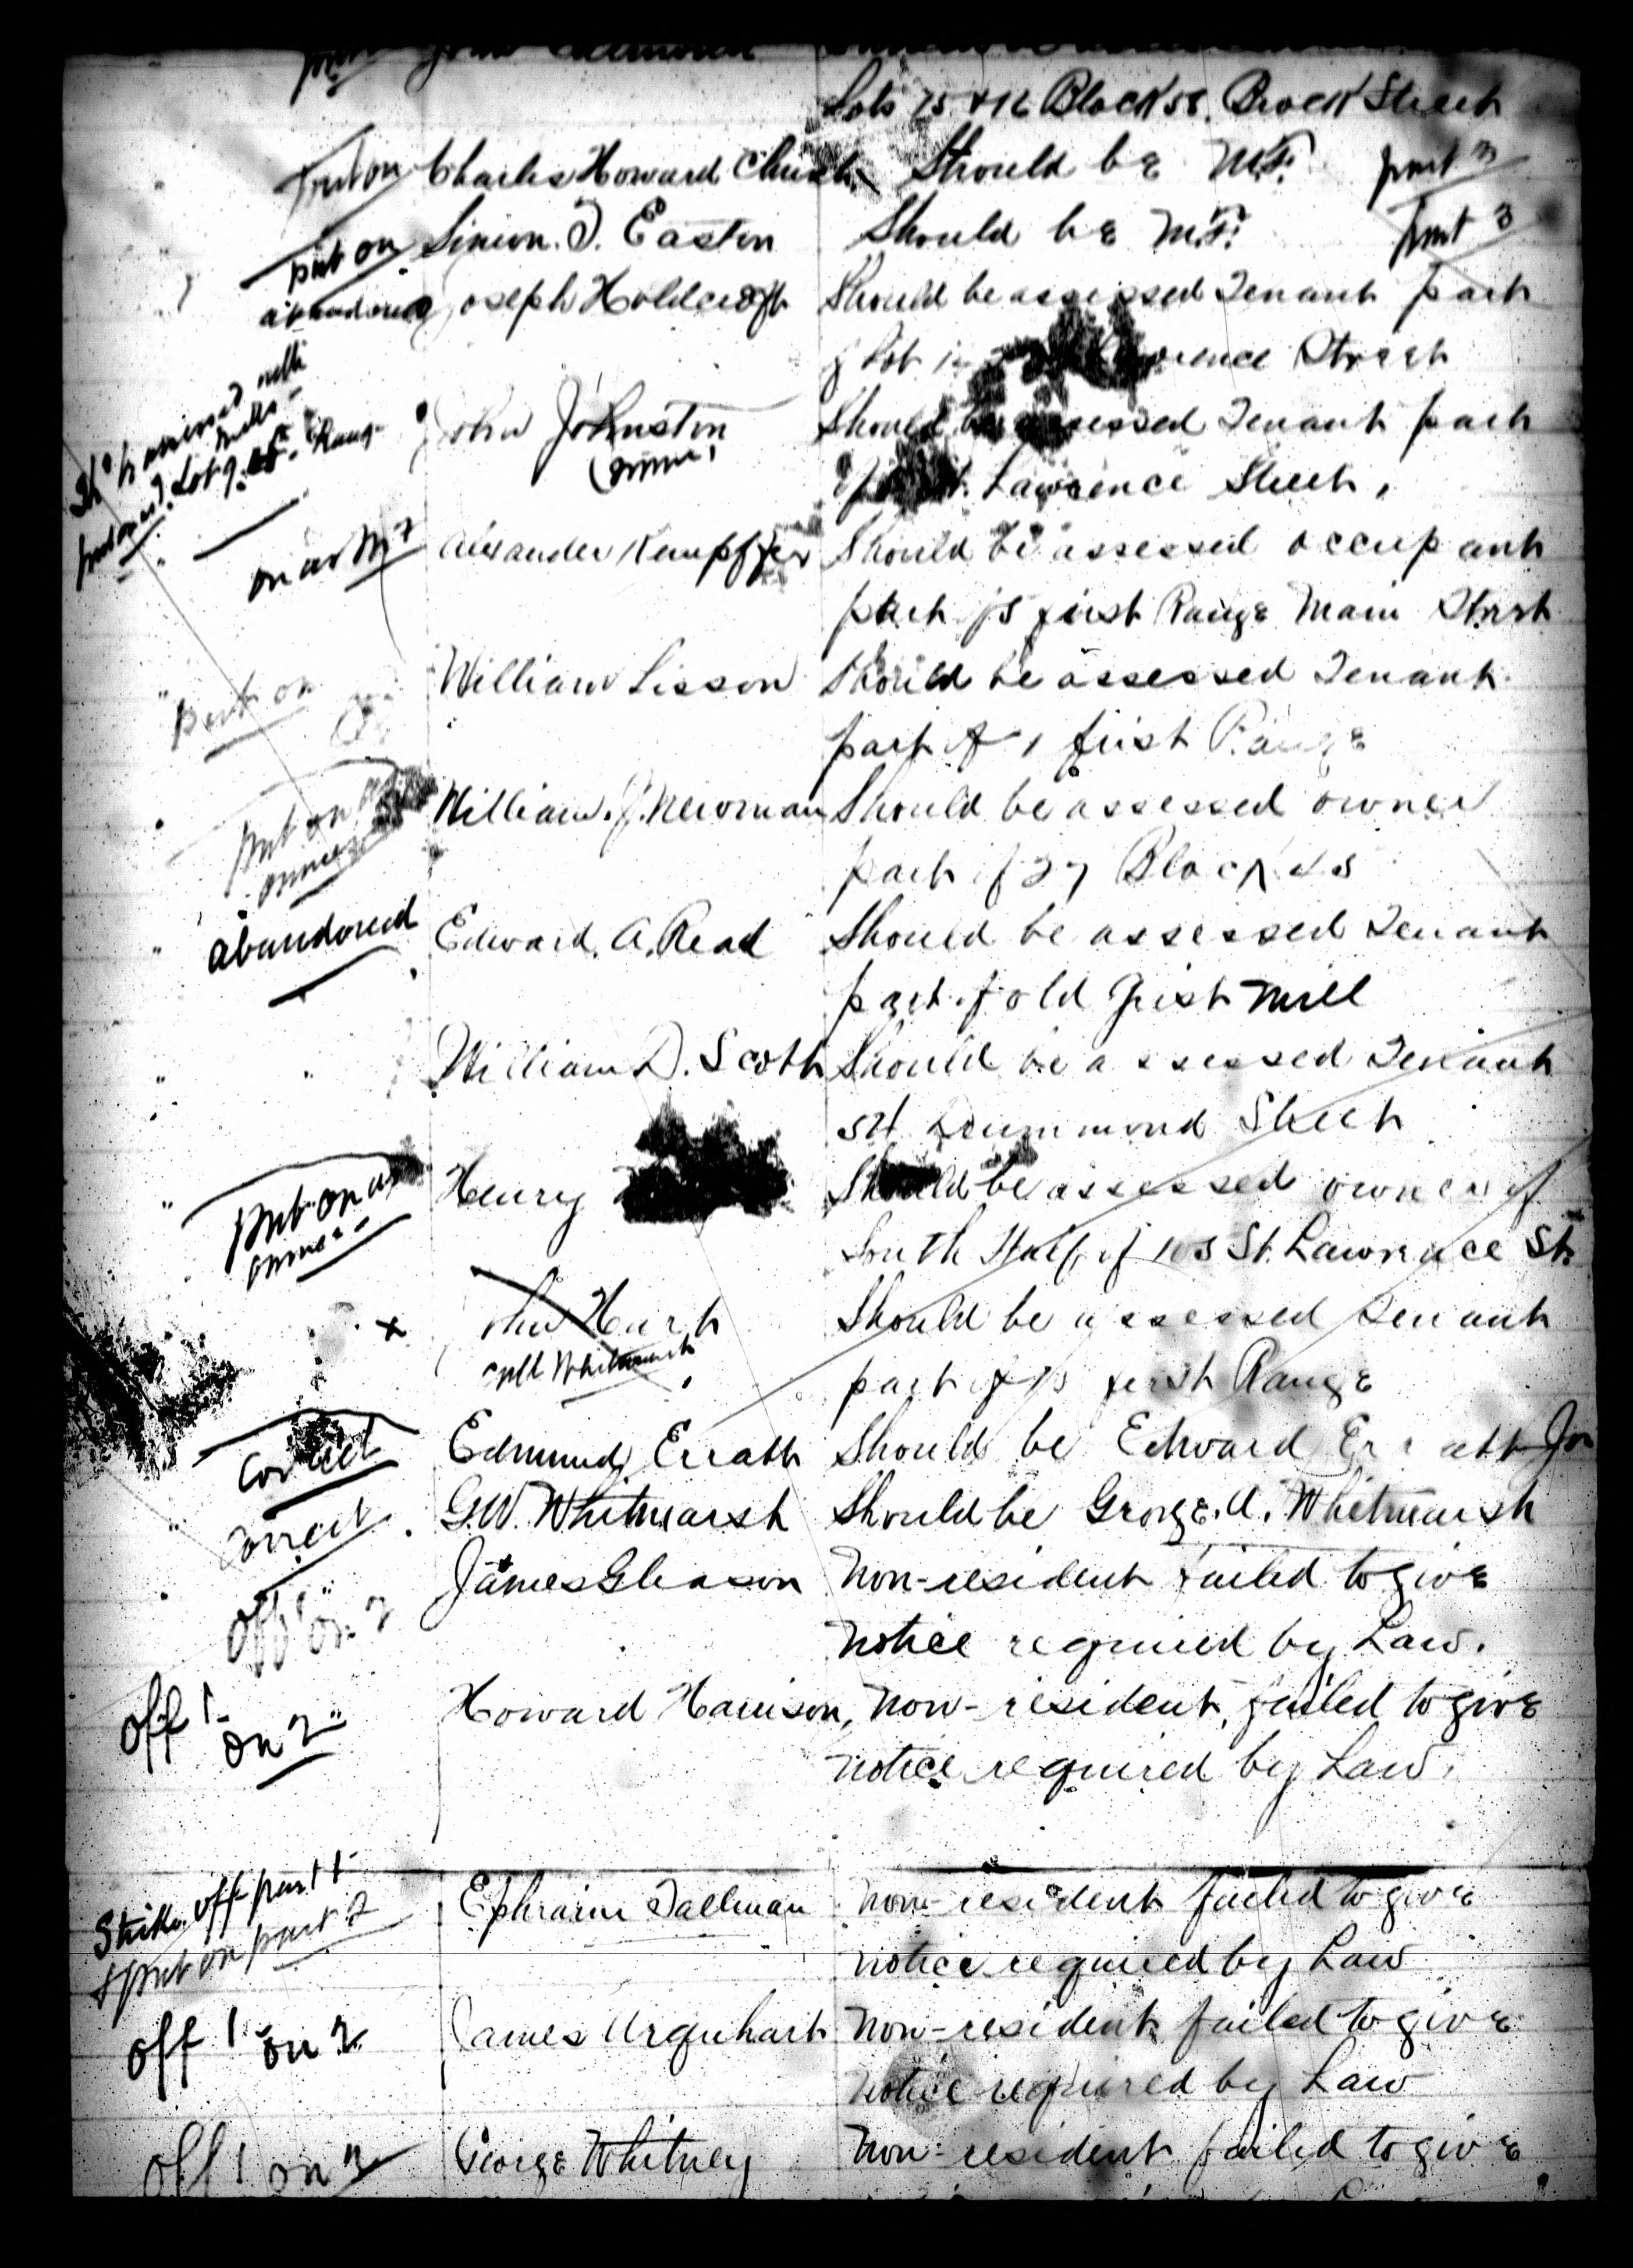 Lots 15 & 16 Block 58. Brock Street
put on Charles Howard Church Should be M.F. part 3
put on Simeon. T. Easton Should be M.F. part 3
abandoned Joseph Holdcroft Should be assessed Tenant part
of Lot Lawrence Street
John Johnston Should be assessed Tenant part
of Lawrence Street,
on as Alexander Kempffer Should be assessed occupant
part 15 first Range Main Street
put on William Sisson Should be assessed Tenant
part of 1 first Range
put on William. J. Newman Should be assessed owner
part of 27 Block
abandoned Edward. A. Read Should be assessed Tenant
part of old Grist Mill
William D. Scott Should be assessed Tenant
54 Drummond Street
put on as owner Henry Should be assessed owner of
South Half of 103 St. Lawrence St.
x John Hurt Should be assessed Tenant
part of 15 first Range
Correct Edmund Erratt Should be Edward Erratt Jr
Correct G.W. Whitmarsh Should be George. A. Whitmarsh
off 1 on 2 James Gleason Non-resident failed to give
notice required by Law.
off 1 on 2 Howard Harrison, Non-resident, failed to give
notice required by Law.
Strike off part 1
& put on part 2
Ephraim Tallman Non-resident failed to give
notice required by Law
off 1 on 2 James Urquhart Non-resident failed to give
notice required by Law
off 1 on 2 George Whitney Non-resident failed to give